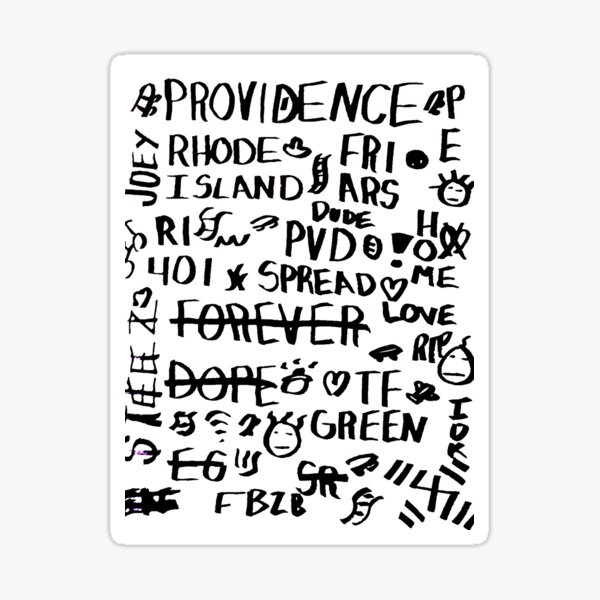 PROVIDENCE
PE
JOEY
RHODE
FRI
ISLAND
ARS
DUDE
HO
ME
RI
PVD
401
SPREAD
LOVE
FOREVER
RIP
DOPE
TF
GREEN
IOR
EG
SR
"4"
FBZB